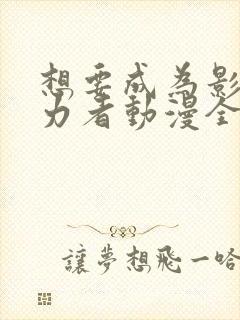 想要成為影
力者動漫全
讓夢想飛一哈